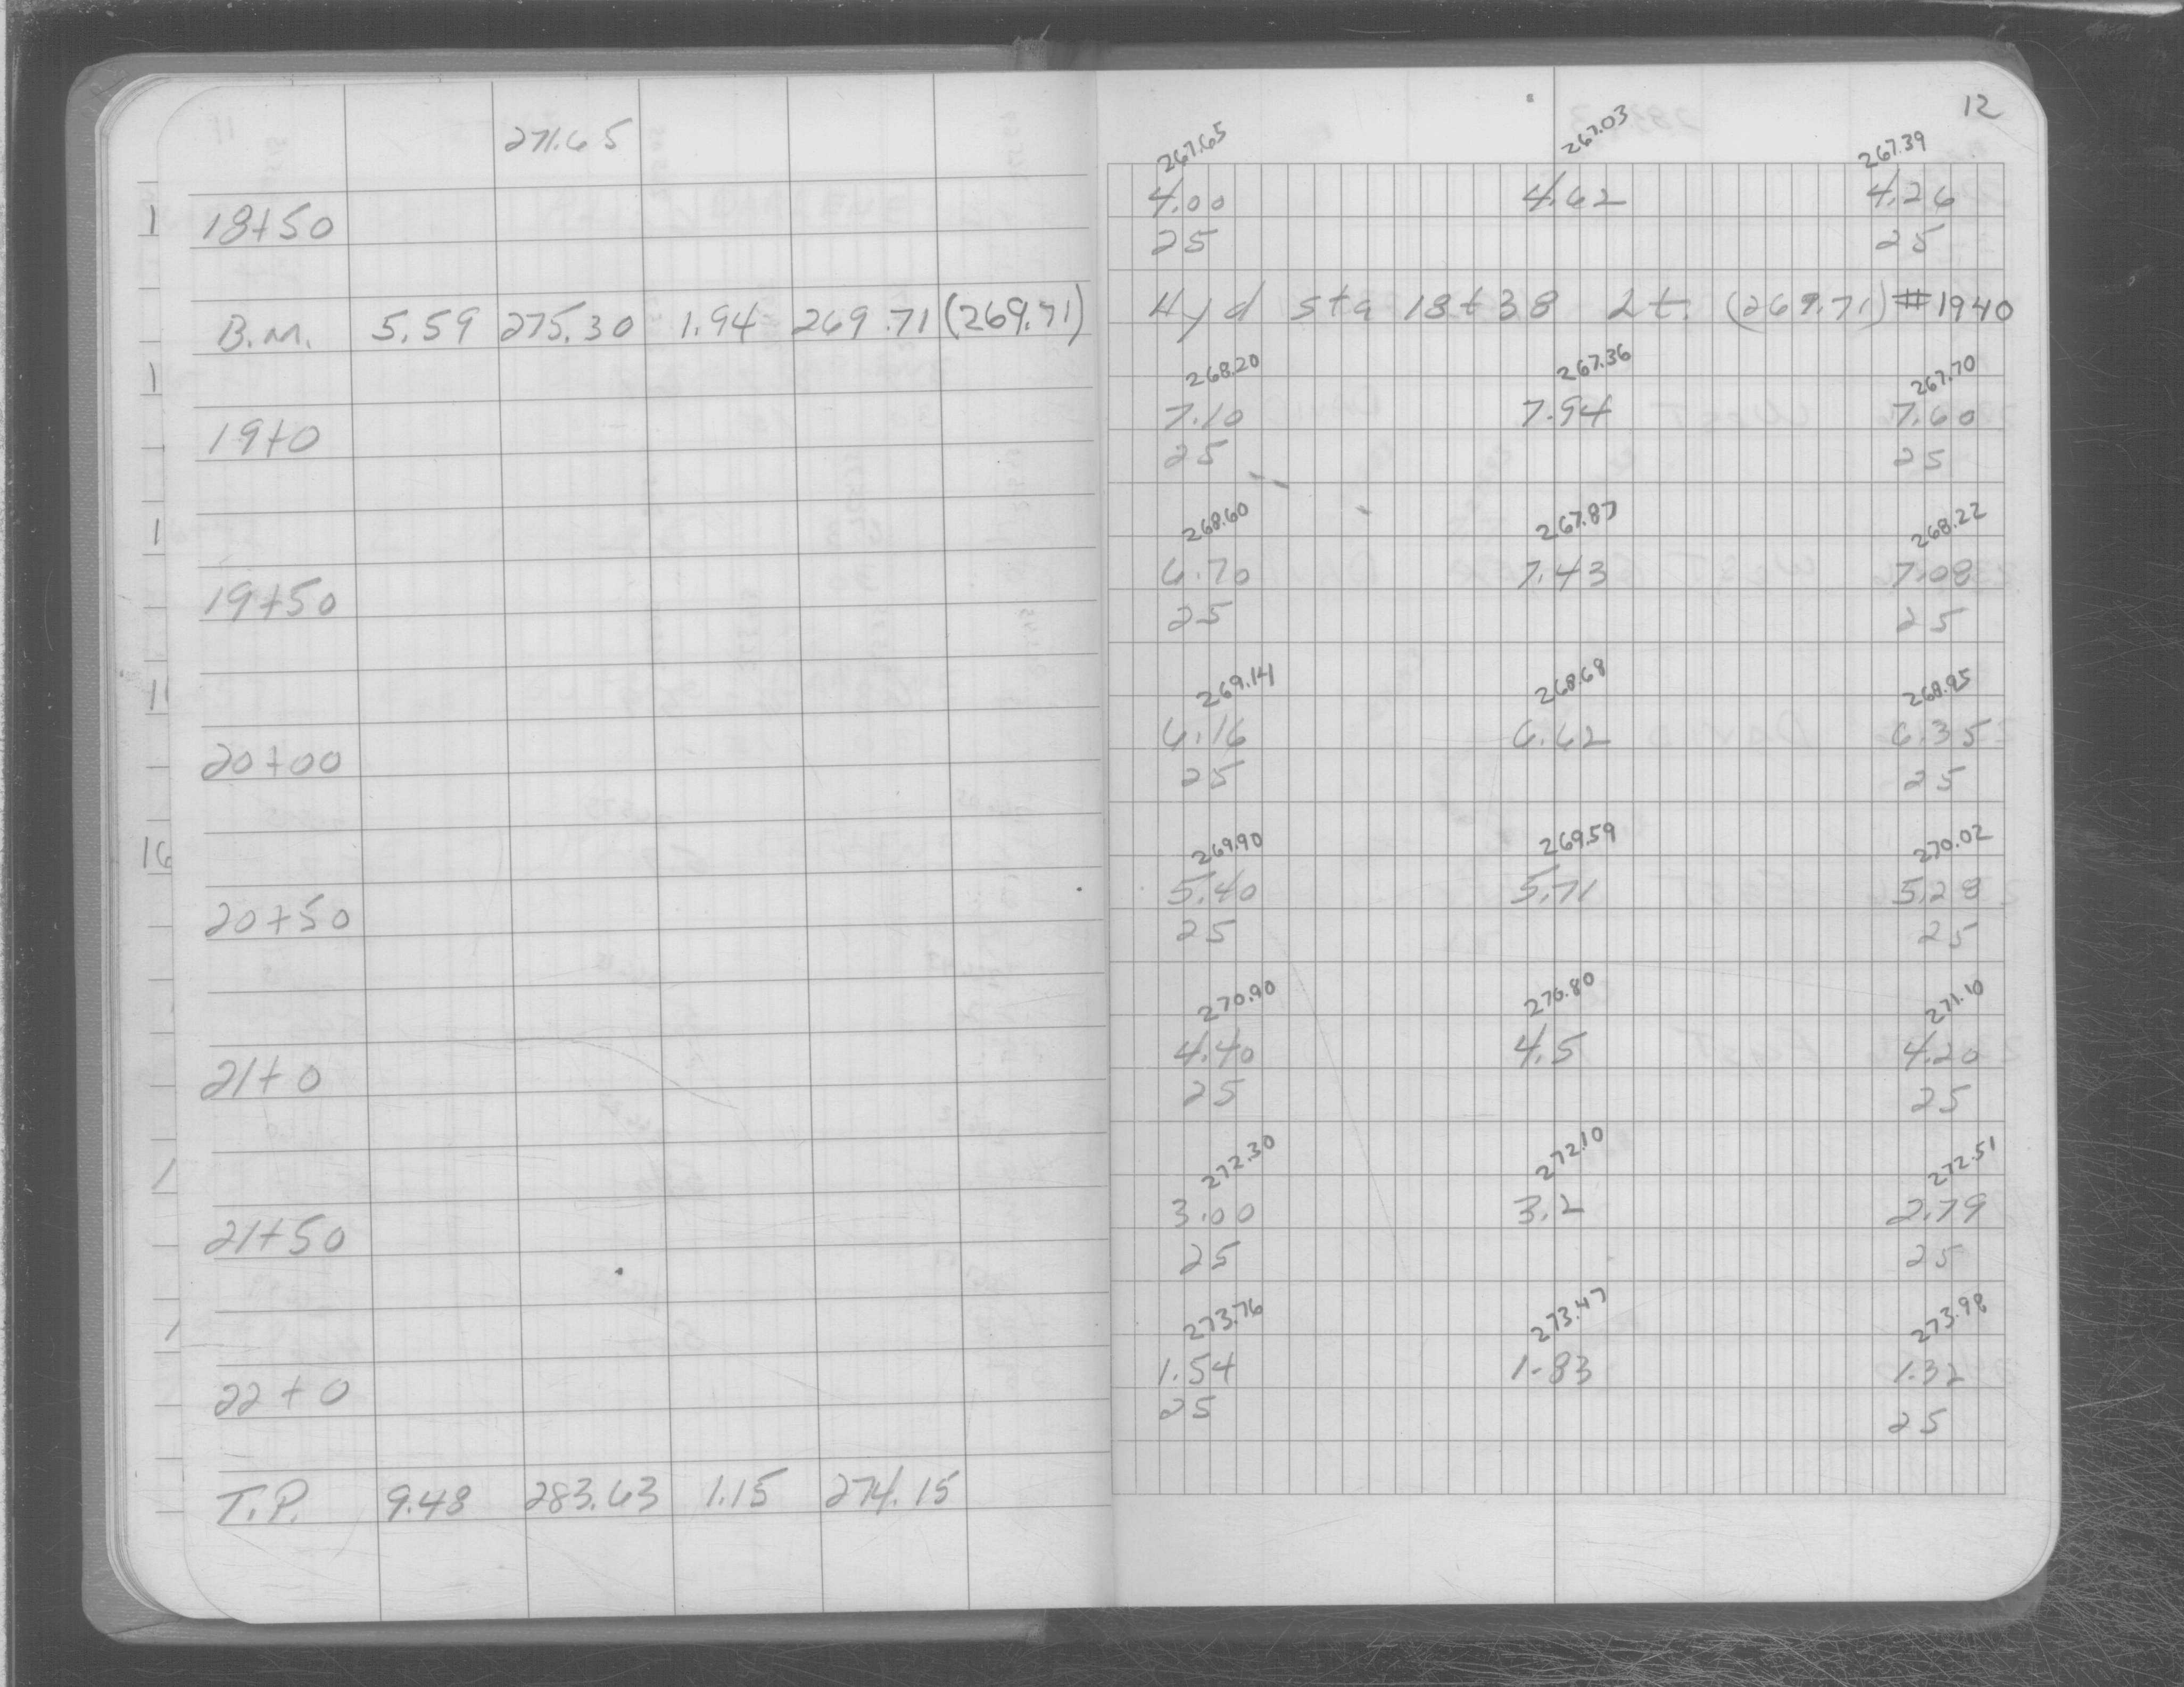 12
271.65
267.65 267.03 267.39
18+50 4.00 4.62 4.26
25 25
B.M. 5.59 275.30 1.94 269.71 (269.71) Hyd sta 18+38 Lt. (269.71) #1940
268.20 267.36 267.70
19+0 7.10 7.94 7.60
25 25
268.60 267.87 268.22
19+50 6.70 7.43 7.08
25 25
269.14 268.68 268.95
20+00 6.16 6.62 6.35
25 25
269.90 269.59 270.02
20+50 5.40 5.71 5.28
25 25
270.90 270.80 271.10
21+0 4.40 4.5 4.20
25 25
272.30 272.10 272.51
21+50 3.00 3.2 2.79
25 25
273.76 273.47 273.98
22+0 1.54 1.83 1.32
25 25
T.P. 9.48 283.63 1.15 274.15